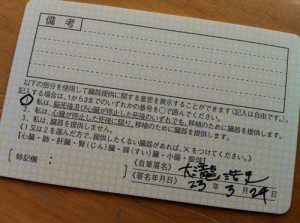 備考
以下の部分を使用して臓器提供に関する意思を表示することができます(記入は自由です。)。
記入する場合は、1から3までのいずれかの番号を○で囲んでください。
1. 私は、脳死後及び心臓が停止した死後のいずれでも、移植のために臓器を提供します。
2. 私は、心臓が停止した死後に限り、移植のために臓器を提供します。
3. 私は、臓器を提供しません。
《1又は2を選んだ方で、提供したくない臓器があれば、×をつけてください。》
【心臓・肺・肝臓・腎(じん)臓・膵(すい)臓・小腸・眼球】
〔特記欄: 〕
《自筆署名》
《署名年月日》 23年 3月 24日